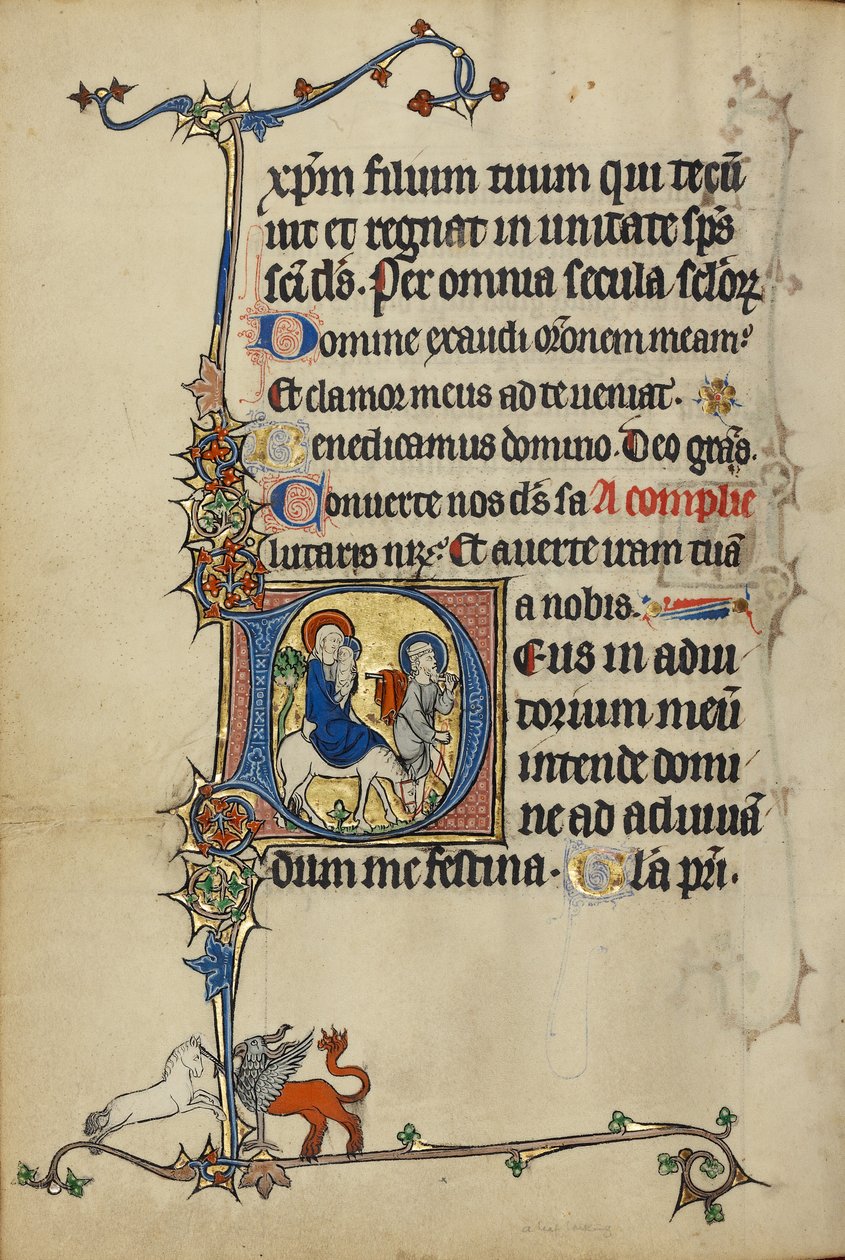 xp̄m filium tuum qui tecū
uiu̅t et regnat in unitate sp̄s
sc̄i d̄s. Per omnia secula sclōꝝ
Domine exaudi or̄onem meam:
Et clamor meus ad te ueniat.
Benedicamus domino. Deo gr̄as.
Conuerte nos d̄s sa A complie
lutaris nr̄: Et auerte iram tuā
a nobis.
Deus in adiu
torium meū
intende domi
ne ad adiuuā
dum me festina. Gl̄a pr̄i.